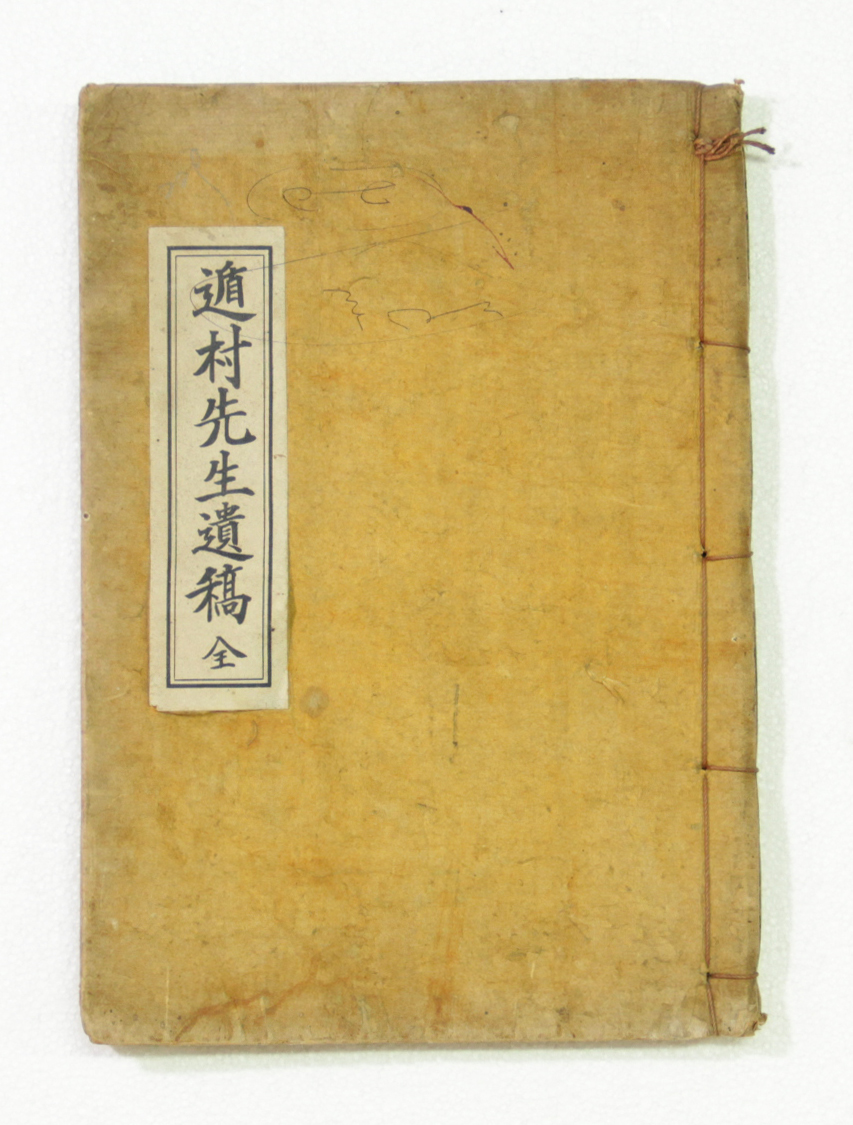 遁村先生遺稿 全